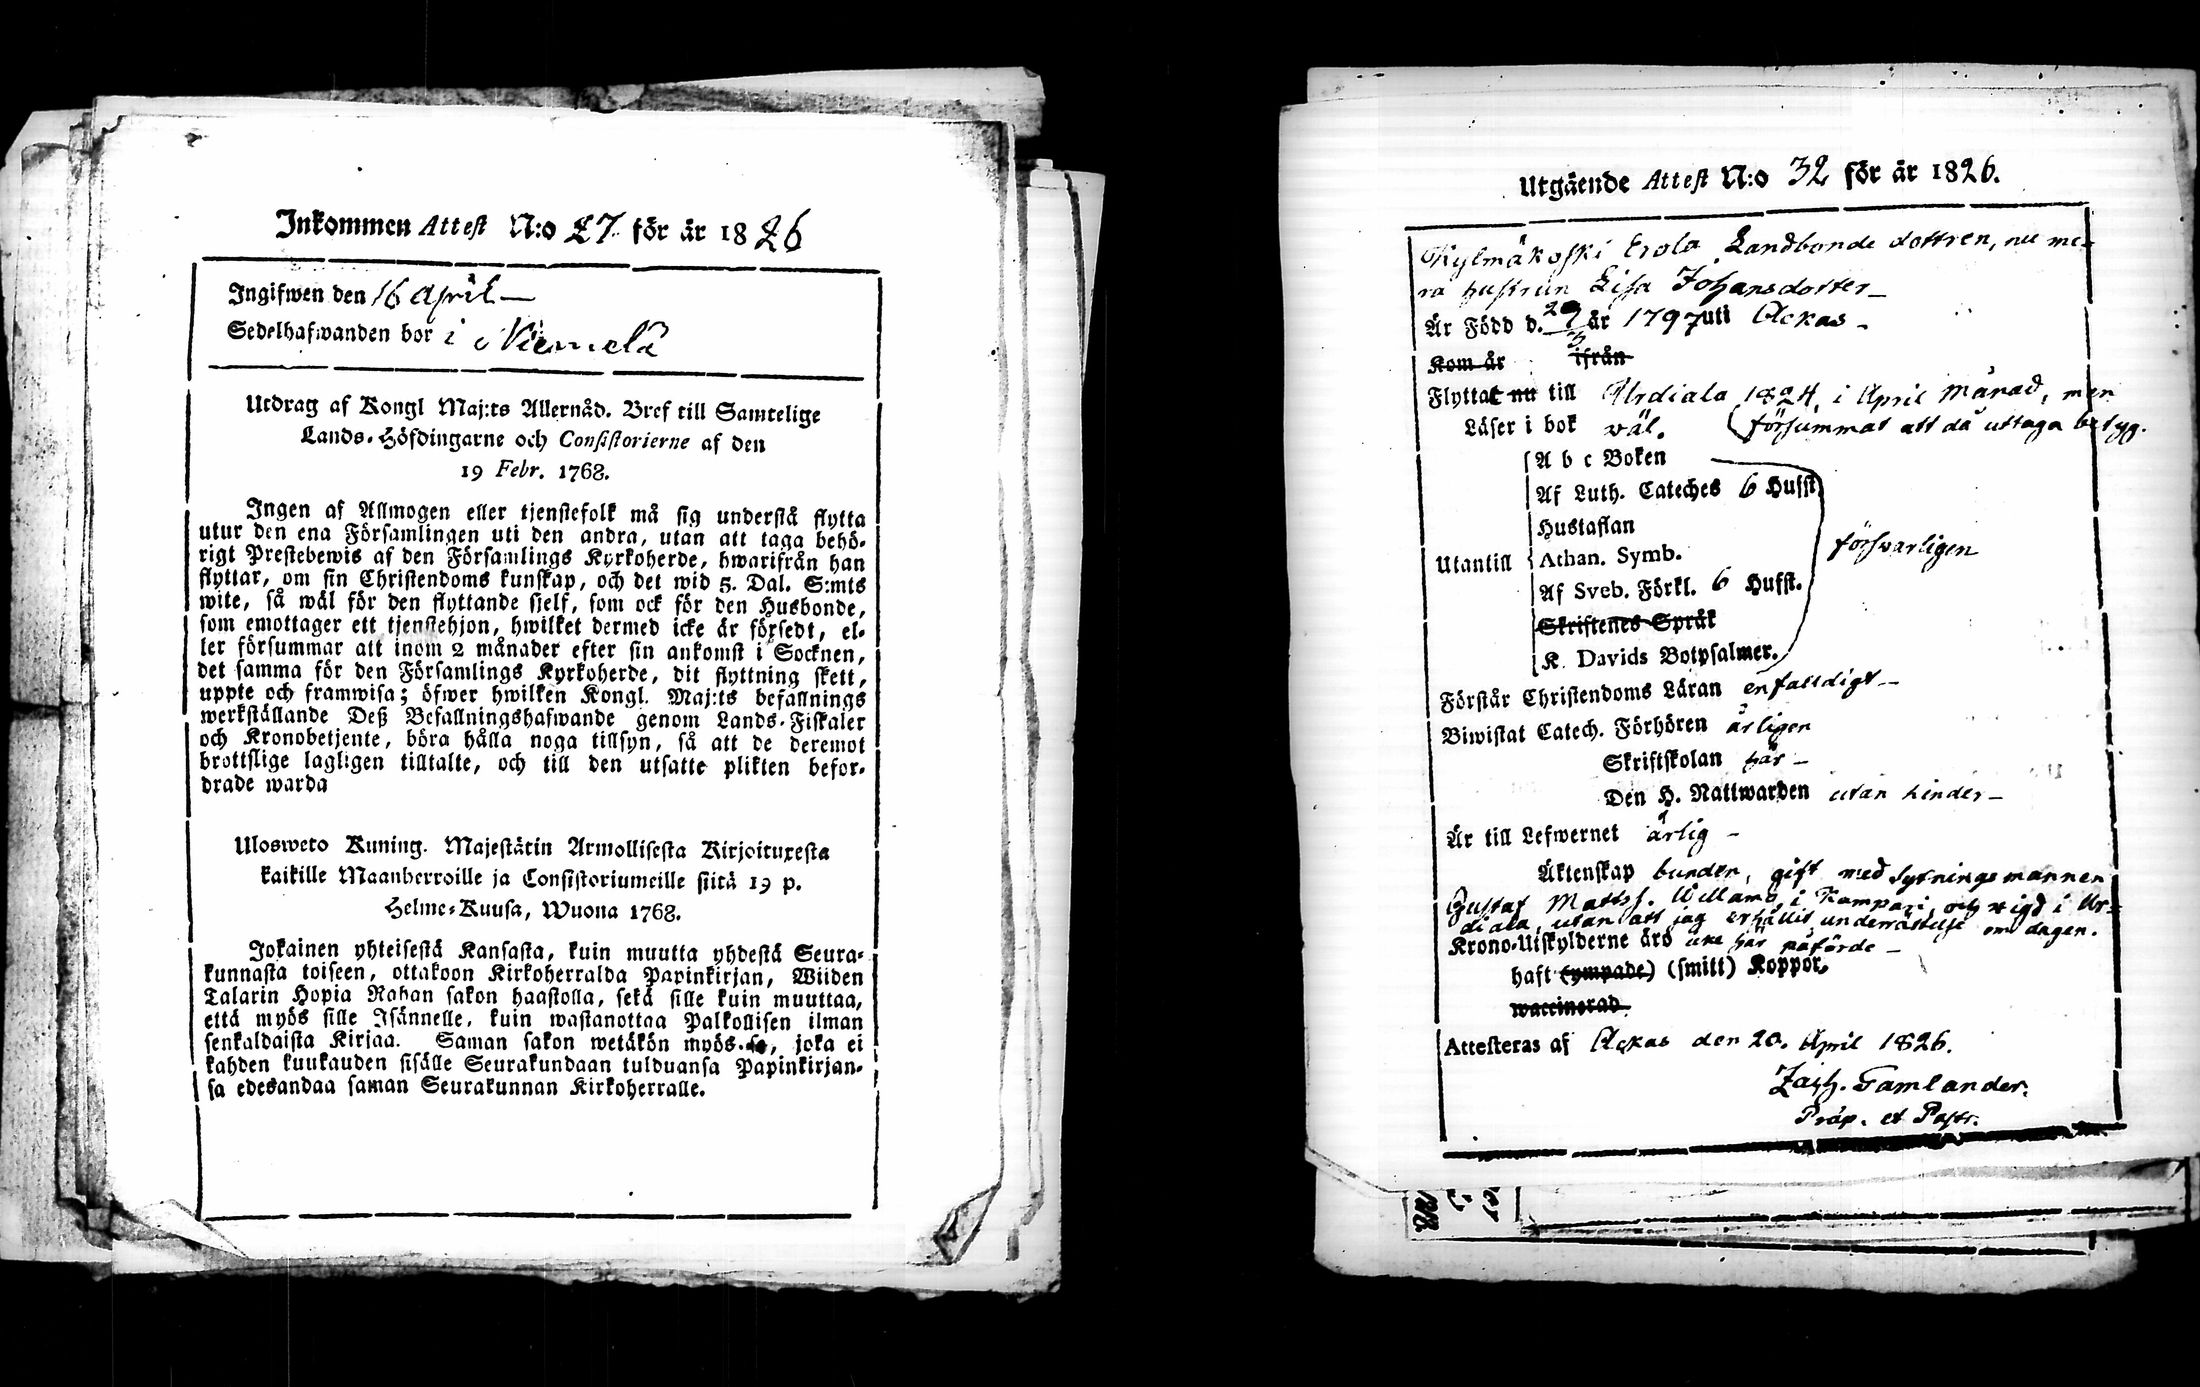 Inkommen Attest N:o 27 för år 1826
Ingifwen den 16 April —
Sedelhafwanden bor i Niemelä
Utdrag af Kongl Maj:ts Allernåd. Bref till Samtelige
Lands-Höfdingarne och Consistorierne af den
19 Febr. 1768.
Ingen af Allmogen eller tjenstefolk må sig understå flytta
utur den ena Församlingen uti den andra, utan att taga behö-
rigt Prestebewis af den Församlings Kyrkoherde, hwarifrån han
flyttar, om sin Christendoms kunskap, och det wid 5. Dal. S:mts
wite, så wäl för den flyttande sjelf, som ock för den Husbonde,
som emottager ett tjenstehjon, hwilket dermed icke är försedt, el-
ler försummar att inom 2 månader efter sin ankomst i Socknen,
det samma för den Församlings Kyrkoherde, dit flyttning skett,
uppte och framwisa; öfwer hwilken Kongl. Maj:ts befallnings
werkställande Deß Befallningshafwande genom Lands-Fiskaler
och Kronobetjente, böra hålla noga tillsyn, så att de deremot
brottslige lagligen tilltalte, och till den utsatte plikten befor-
drade warda
Ulosweto Kuning. Majestätin Armollisesta Kirjoituxesta
kaikille Maanherroille ja Consistoriumeille siitä 19 p.
Helme-Kuusa, Wuona 1768.
Jokainen yhteisestä Kansasta, kuin muutta yhdestä Seura-
kunnasta toiseen, ottakoon Kirkoherralda Papinkirjan, Wiiden
Talarin Hopia Rahan sakon haastolla, sekä sille kuin muuttaa,
että myös sille Isännelle, kuin wastanottaa Palkollisen ilman
senkaldaista Kirjaa. Saman sakon wetäkön myös se, joka ei
kahden kuukauden sisälle Seurakundaan tulduansa Papinkirjan-
sa edesandaa saman Seurakunnan Kirkoherralle.
Utgående Attest N:o 32 för år 1826.
Kylmäkoski Erola Landbonde dottren, nu me-
ra hustrun Lisa Johansdotter —
Är Född d. 29/3 år 1797 uti Ackas —
Kom år ifrån
Flyttat nu till Urdiala 1824, i April månad, men
Läser i bok wäl. (försummat att då uttaga betyg.
A b c Boken
Af Luth. Cateches 6 Hufst.
Hustaflan
Utantill Athan. Symb. försvarligen
Af Sveb. Förkl. 6 Hufst.
Skriftenes Språk
K. Davids Botpsalmer.
Förstår Christendoms Läran enfaldigt —
Biwistat Catech. Förhören årligen
Skriftskolan här —
Den H. Nattwarden utan hinder —
Är till Lefwernet ärlig —
Äktenskap bunden, gift med Sytningsmannen
Gustaf Matts. Willama, i Kampari, och vigd i Ur-
diala, utan att jag erhållit underrättelse om dagen.
Krono-Utskylderne äro icke här påförde —
haft (ympade) (smitt) Koppor.
waccinerad.
Attesteras af Ackas den 20. April 1826.
Zach. Tamlander.
Präp. et Past:r.